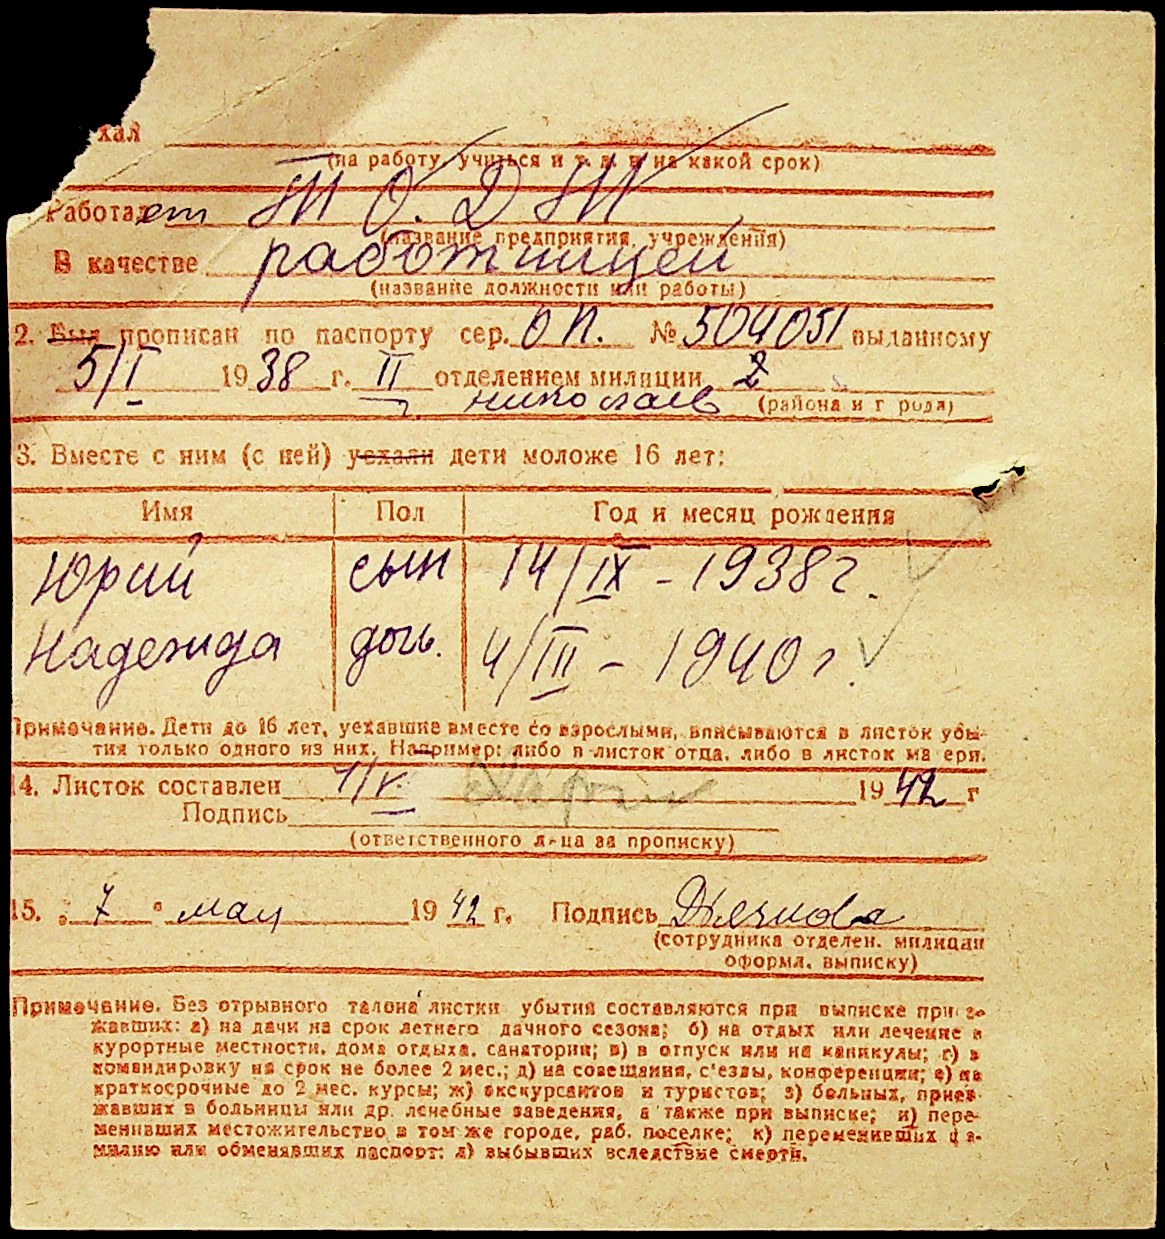 хал
(на работу, учиться и т. д. и на какой срок)
Работает Т О. Д Т
(название предприятия, учреждения)
В качестве работницей
(название должности или работы)
2. Был прописан по паспорту сер. ОП. № 504051 выданному
5/I 1938 г. II отделением милиции 2
николаев (района и г рода)
3. Вместе с ним (с ней) уехали дети моложе 16 лет:
Имя Пол Год и месяц рождения
Юрий сын 14/IX - 1938 г.
Надежда дочь. 4/III - 1940 г.
Примечание. Дети до 16 лет, уехавшие вместе со взрослыми, вписываются в листок убы-
тия только одного из них. Например: либо в листок отца, либо в листок ма ери.
14. Листок составлен 1/V. 1942 г
Подпись
(ответственного лица за прописку)
15. „ 7 " мая 1942 г. Подпись Дьячкова
(сотрудника отделен. милиции
оформл. выписку)
Примечание. Без отрывного талона листки убытия составляются при выписке прие-
жавших: а) на дачи на срок летнего дачного сезона; б) на отдых или лечение в
курортные местности, дома отдыха, санатории; в) в отпуск или на каникулы; г) в
командировку на срок не более 2 мес.; д) на совещания, с'езды, конференции; е) на
краткосрочные до 2 мес. курсы; ж) экскурсантов и туристов; з) больных, приез-
жавших в больницы или др. лечебные заведения, а также при выписке; и) пере-
менивших местожительство в том же городе, раб. поселке; к) переменивших фа-
милию или обменявших паспорт; л) выбывших вследствие смерти.